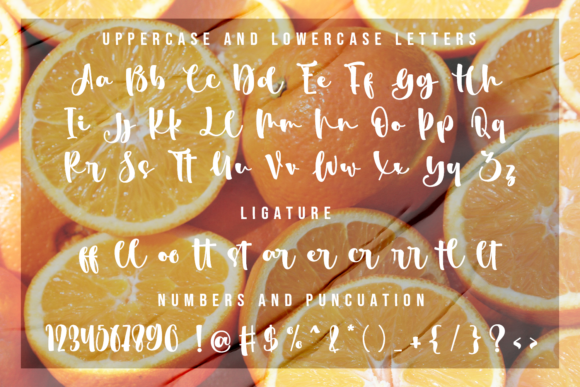 UPPERCASE AND LOWERCASE LETTERS
Aa Bb Cc Dd Ee Ff Gg Hh
Ii Jj Kk Ll Mm Nn Oo Pp Qq
Rr Ss Tt Uu Vv Ww Xx Yy Zz
LIGATURE
ff ll oo tt st ar er cr rr tl lt
NUMBERS AND PUNCUATION
1234567890 !@#$%^&*()_+{/}?<>